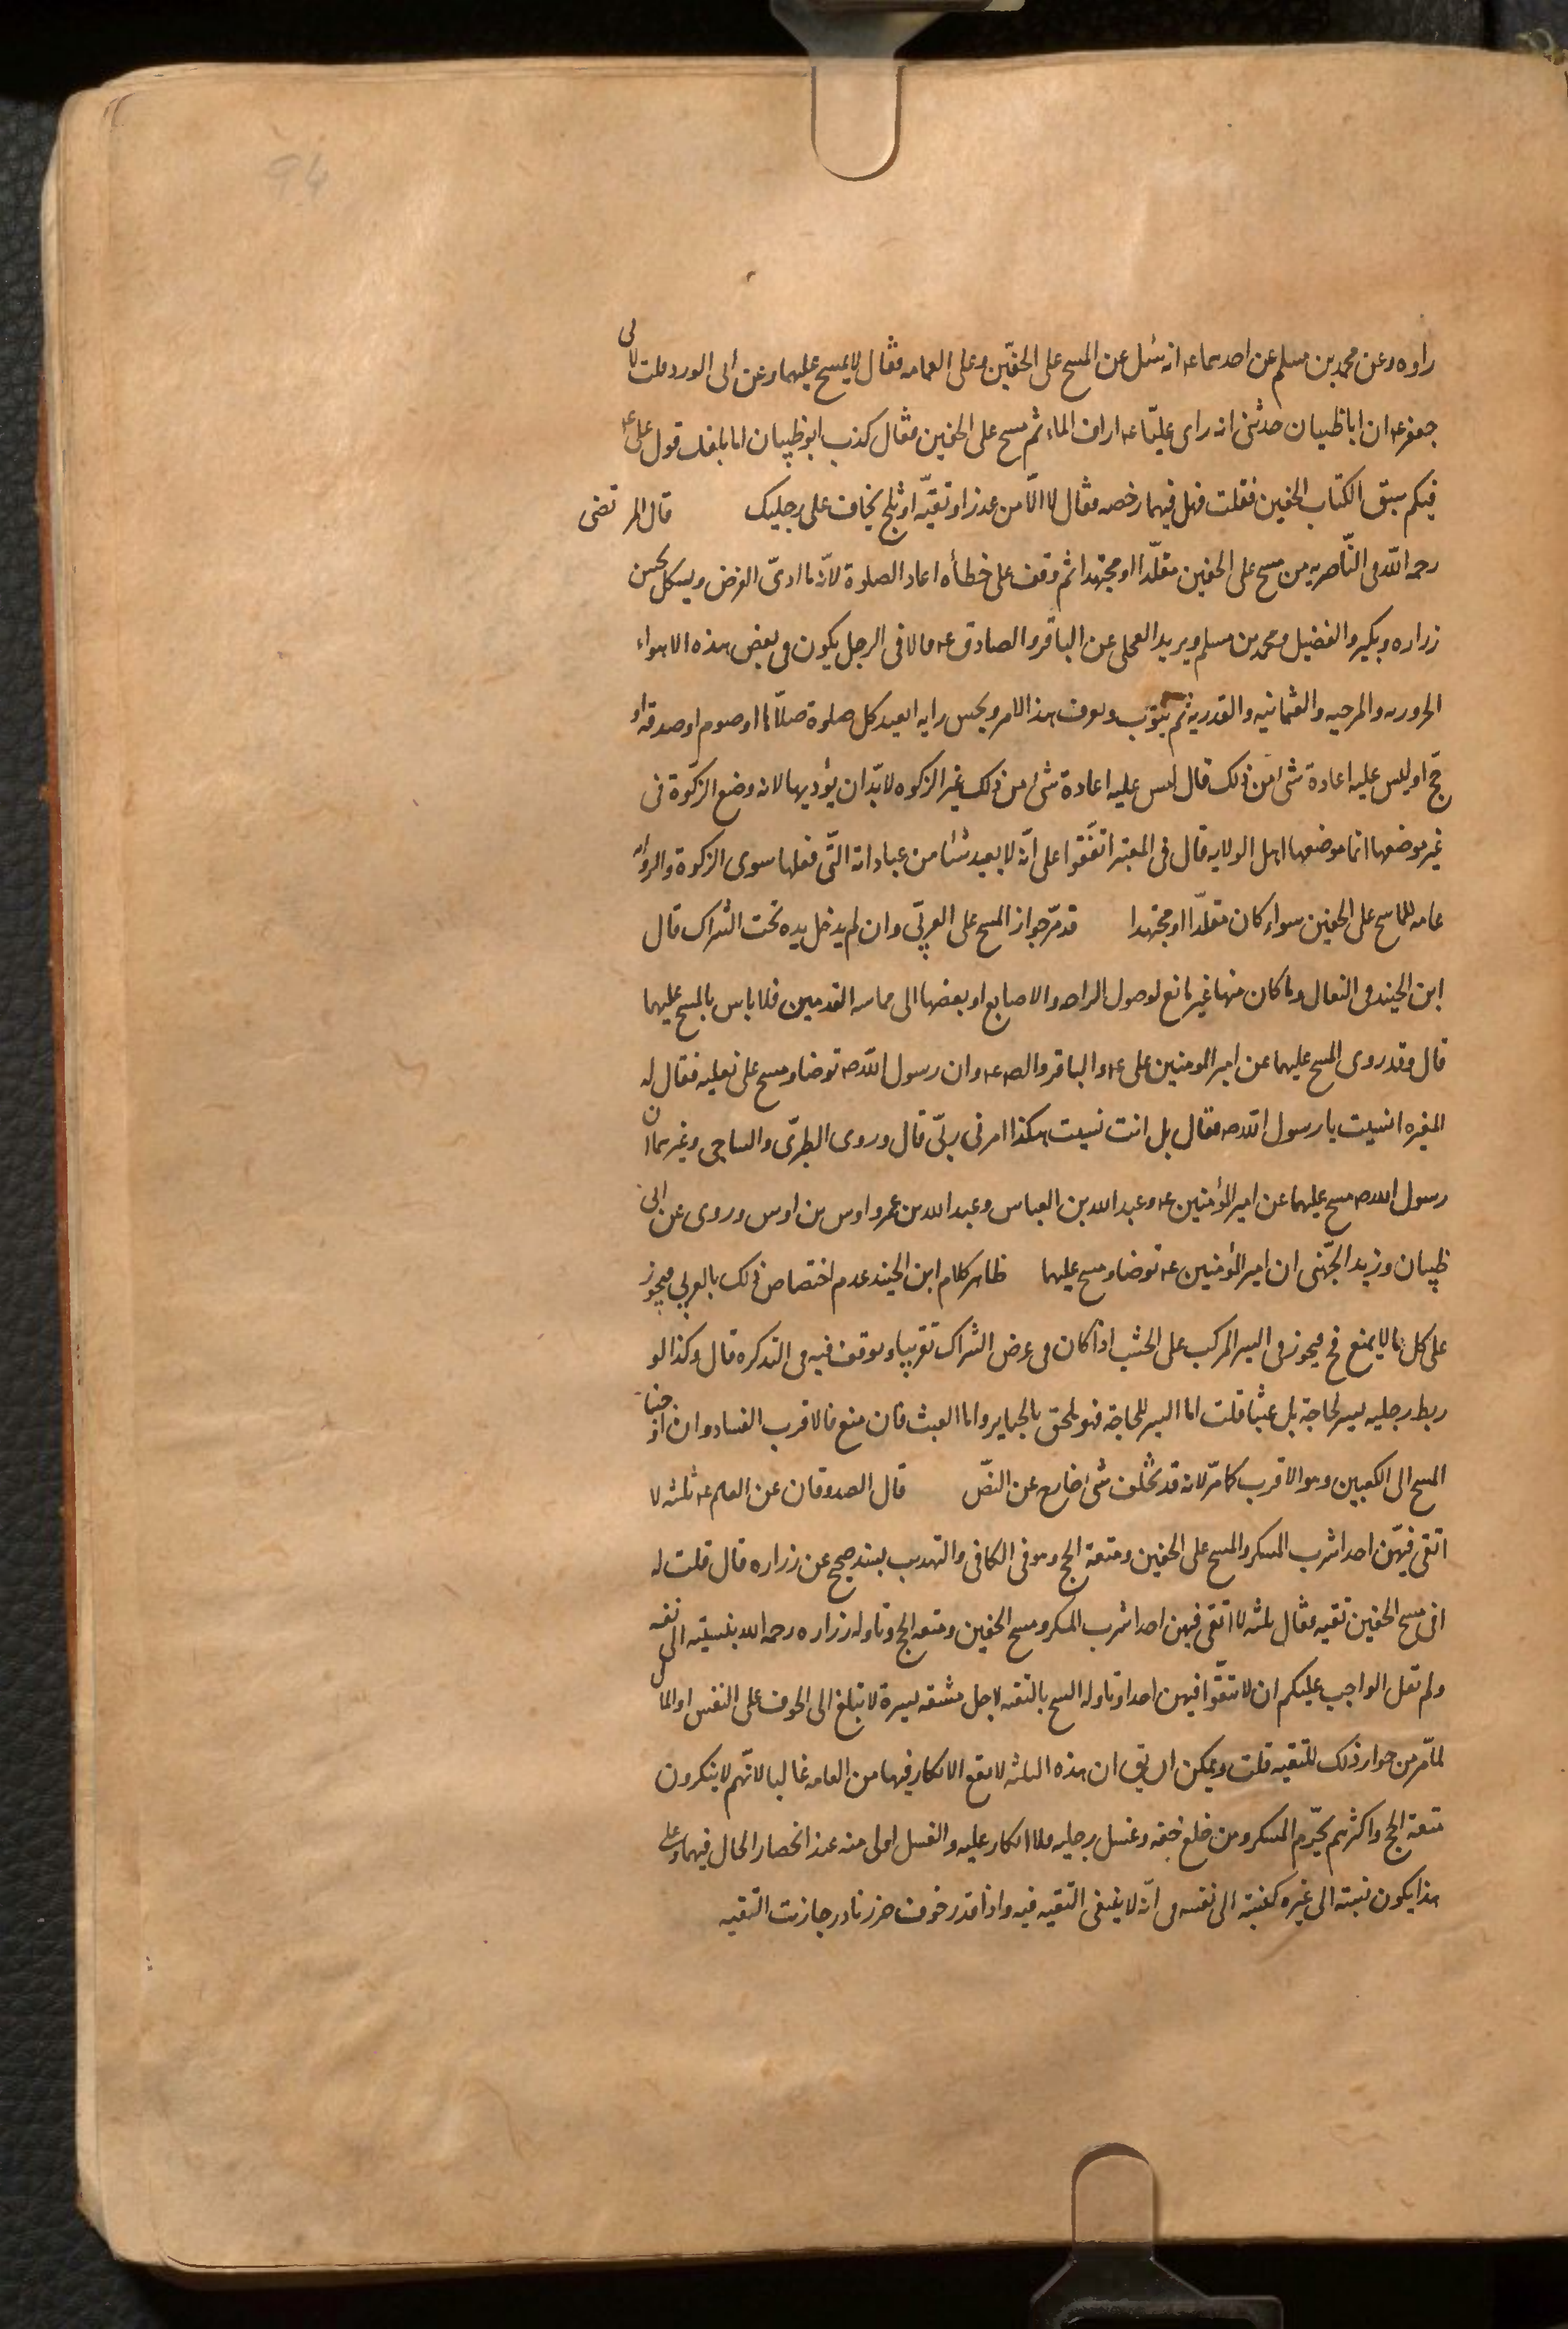 94
راوه وعن محمد بن مسلم عن احدهما عه انه سئل عن المسح على الخفّين وعلى العمامه فقال لا يمسح عليهما وعن ابى الورد قلت لابى
جعفر عه ان ابا ظبيان حدثنى انه راى عليّا عه اراق الماء ثم مسح على الخفين فقال كذب ابو ظبيان اما بلغك قول على عه
فيكم سبق الكتاب الخفين فقلت فهل فيهما رخصه فقال لا الّا من عدو او تقيّه او ثلج يخاف على رجليك قال المرتضى
رحمه الله فى النّاصريه من مسح على الخفين مقلّدا او مجتهدا ثم وقف على خطأه اعاد الصلوة لانّه ما ادىّ الفرض ويشكل بحسن
زراره وبكير والفضيل ومحمد بن مسلم وبريد العجلى عن الباقر والصادق عه قالا فى الرجل يكون فى بعض هذه الاهواء
الحروريه والمرجيه والعثمانيه والقدريه ثم يتوب ويعرف هذا الامر ويحسن رايه ايعيد كل صلوة صلّاها او صوم او صدقه او
حجّ او ليس عليه اعادة شىء من ذلك قال ليس عليه اعادة شىء من ذلك غير الزكوه لا بدّ ان يؤديها لانه وضع الزكوة فى
غير موضعها انما موضعها اهل الولايه قال فى المعتبر اتفقوا على انّه لا يعيد شئا من عباداته الّتى فعلها سوى الزكوة والروايه
عامه للماسح على الخفين سواء كان مقلّدا او مجتهدا قد مرّ جواز المسح على العربّى وان لم يدخل يده تحت الشراك قال
ابن الجنيد فى النعال وما كان منها غير مانع لوصول الراحه والاصابع او بعضها الى مماسه القدمين فلا باس بالمسح عليهما
قال وقد روى المسح عليهما عن امير المومنين على عه والباقر والصه عه وان رسول الله صه توضا ومسح على نعليه فقال له
المغيره انسيت يا رسول الله صه فقال بل انت نسيت هكذا امرنى ربّى قال وروى الطبرّى والساجى وغيرهما ان
رسول الله صه مسح عليهما عن امير المؤمنين عه وعبد الله بن العباس وعبد الله بن عمر واوس بن اوس وروى عن ابى
ظبيان وزيد الجهّنى ان امير المؤمنين عه توضا ومسح عليهما ظاهر كلام ابن الجنيد عدم اختصاص ذلك بالعربى فيجوز
على كل ما لا يمنع فح فيجوز فى السير المركب على الخشب اذا كان فى عرض الشراك تقريبا وتوقف فيه فى التذكره قال وكذا لو
ربط رجليه بسير لحاجة بل عبثا قلت اما السير للحاجة فهو ملحق بالجباير واما العبث فان منع فالاقرب الفساد وان اوجبنا
المسح الى الكعبين وهو الاقرب كما مرّ لانه قد تخلّف شىء خارج عن النصّ قال الصدوقان عن العالم عه ثلثه لا
اتقى فيهّن احدا شرب المسكر والمسح على الخفين ومتعة الحج وهو فى الكافى والتهذيب بسند صحيح عن زراره قال قلت له
افى مسح الخفين تقيه فقال ثلثه لا اتقى فيهن احدا شرب المسكر ومسح الخفين ومتعه الحج وتاوله زراره رحمه الله بنسبته الى نفسه
ولم تقل الواجب عليكم ان لا تتقّوا فيهن احدا وتاوله الشيخ بالتقيه لاجل مشقه يسيرة لا تبلغ الى الخوف على النفس او المال
لما مّر من جواز ذلك للتقيه قلت ويمكن ان يق ان هذه الثلثه لا يقع الانكار فيها من العامه غالبا لانّهم لا ينكرون
متعة الحج واكثرهم يحّرم المسكر ومن خلع خفّه وغسل رجليه فلا انكار عليه والغسل اولى منه عند انحصار الحال فيهما وعلى
هذا يكون نسبته الى غيره كنسبته الى نفسه فى انّه لا ينبغى التقيه فيه واذا قدر خوف ضرر نادر جازت التقيه